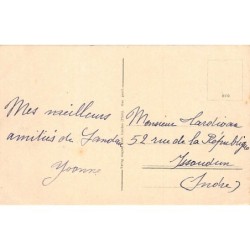 Mes meilleurs
amitiés de Landa
Yvonne
Monsieur Hardivau
52 rue de la République
Issoudun
(Indre)